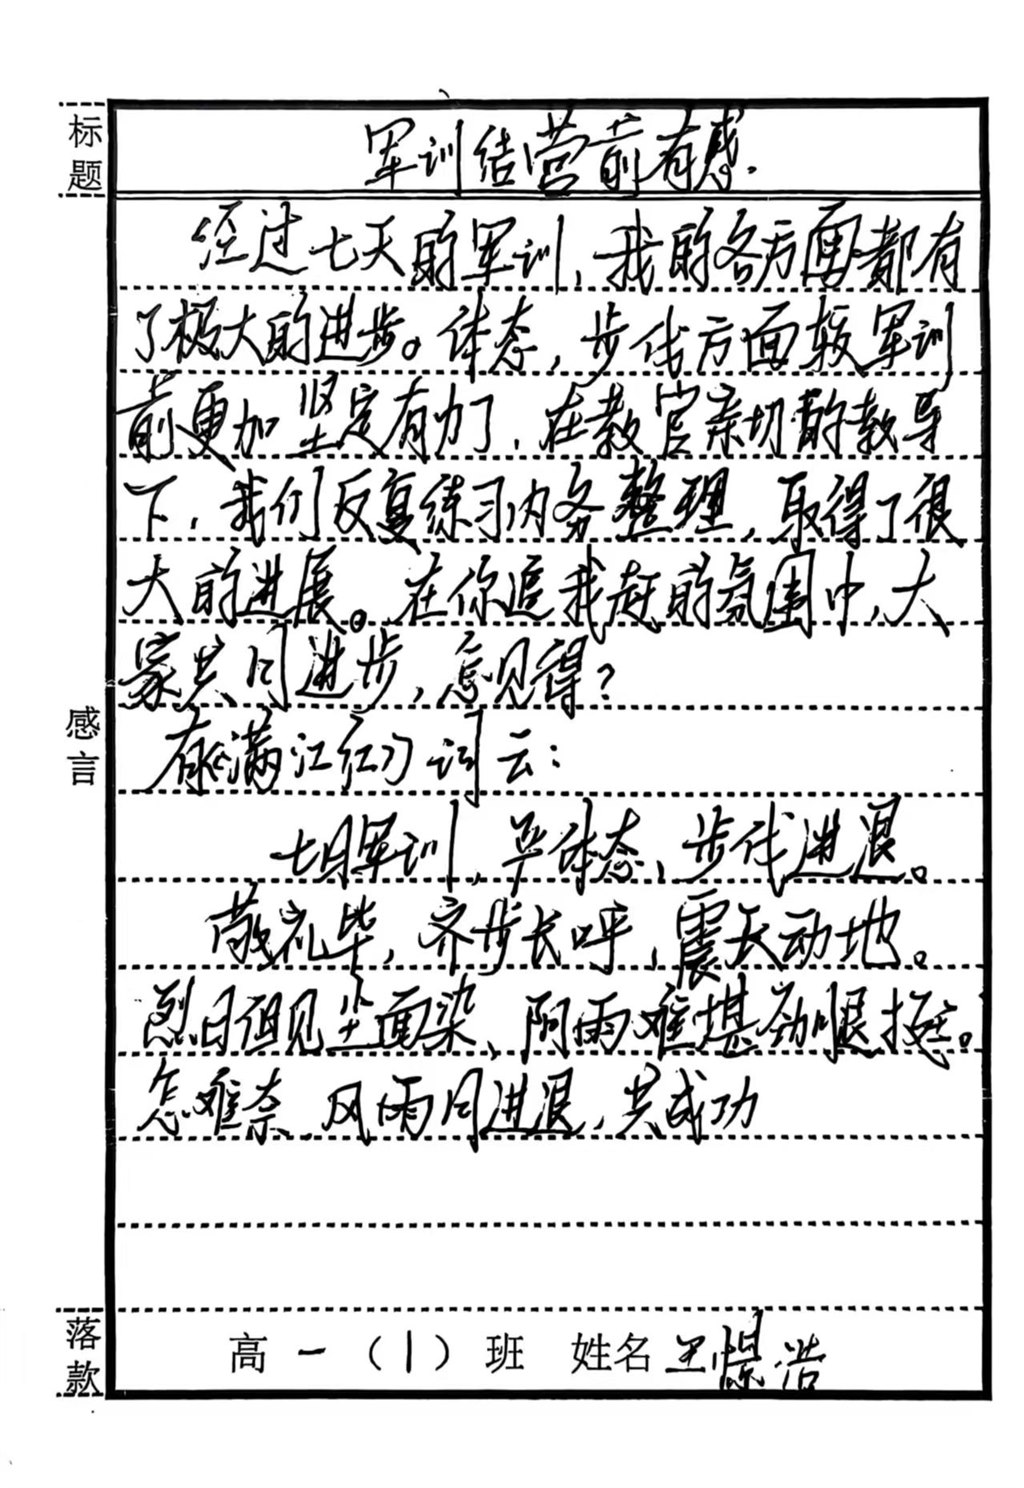 标题
军训结营前有感.
经过七天的军训,我的各方面都有
了极大的进步。体态,步伐方面较军训
前更加坚定有力了,在教官亲切的教导
下,我们反复练习内务整理,取得了很
大的进展。在你追我赶的氛围中,大
家共同进步,怎见得?
感言
有《满江红》词云:
七日军训,毕体态,步伐进退。
敬礼毕,齐步长呼,震天动地。
烈日但见尘面染,阴雨难堪劲腿挺。
怎难奈,风雨同进退,共成功
落款
高一(1)班 姓名 王憬浩